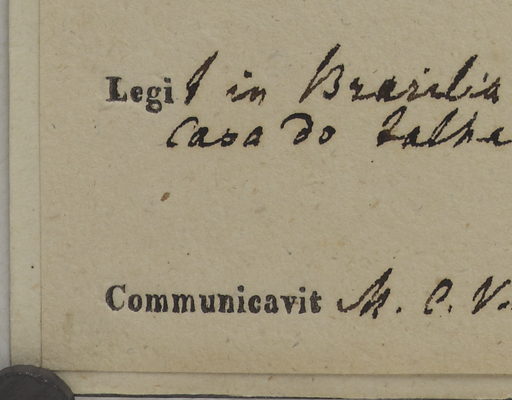 Legit in Brasilia
Casa do Talha
Communicavit M. C. V.